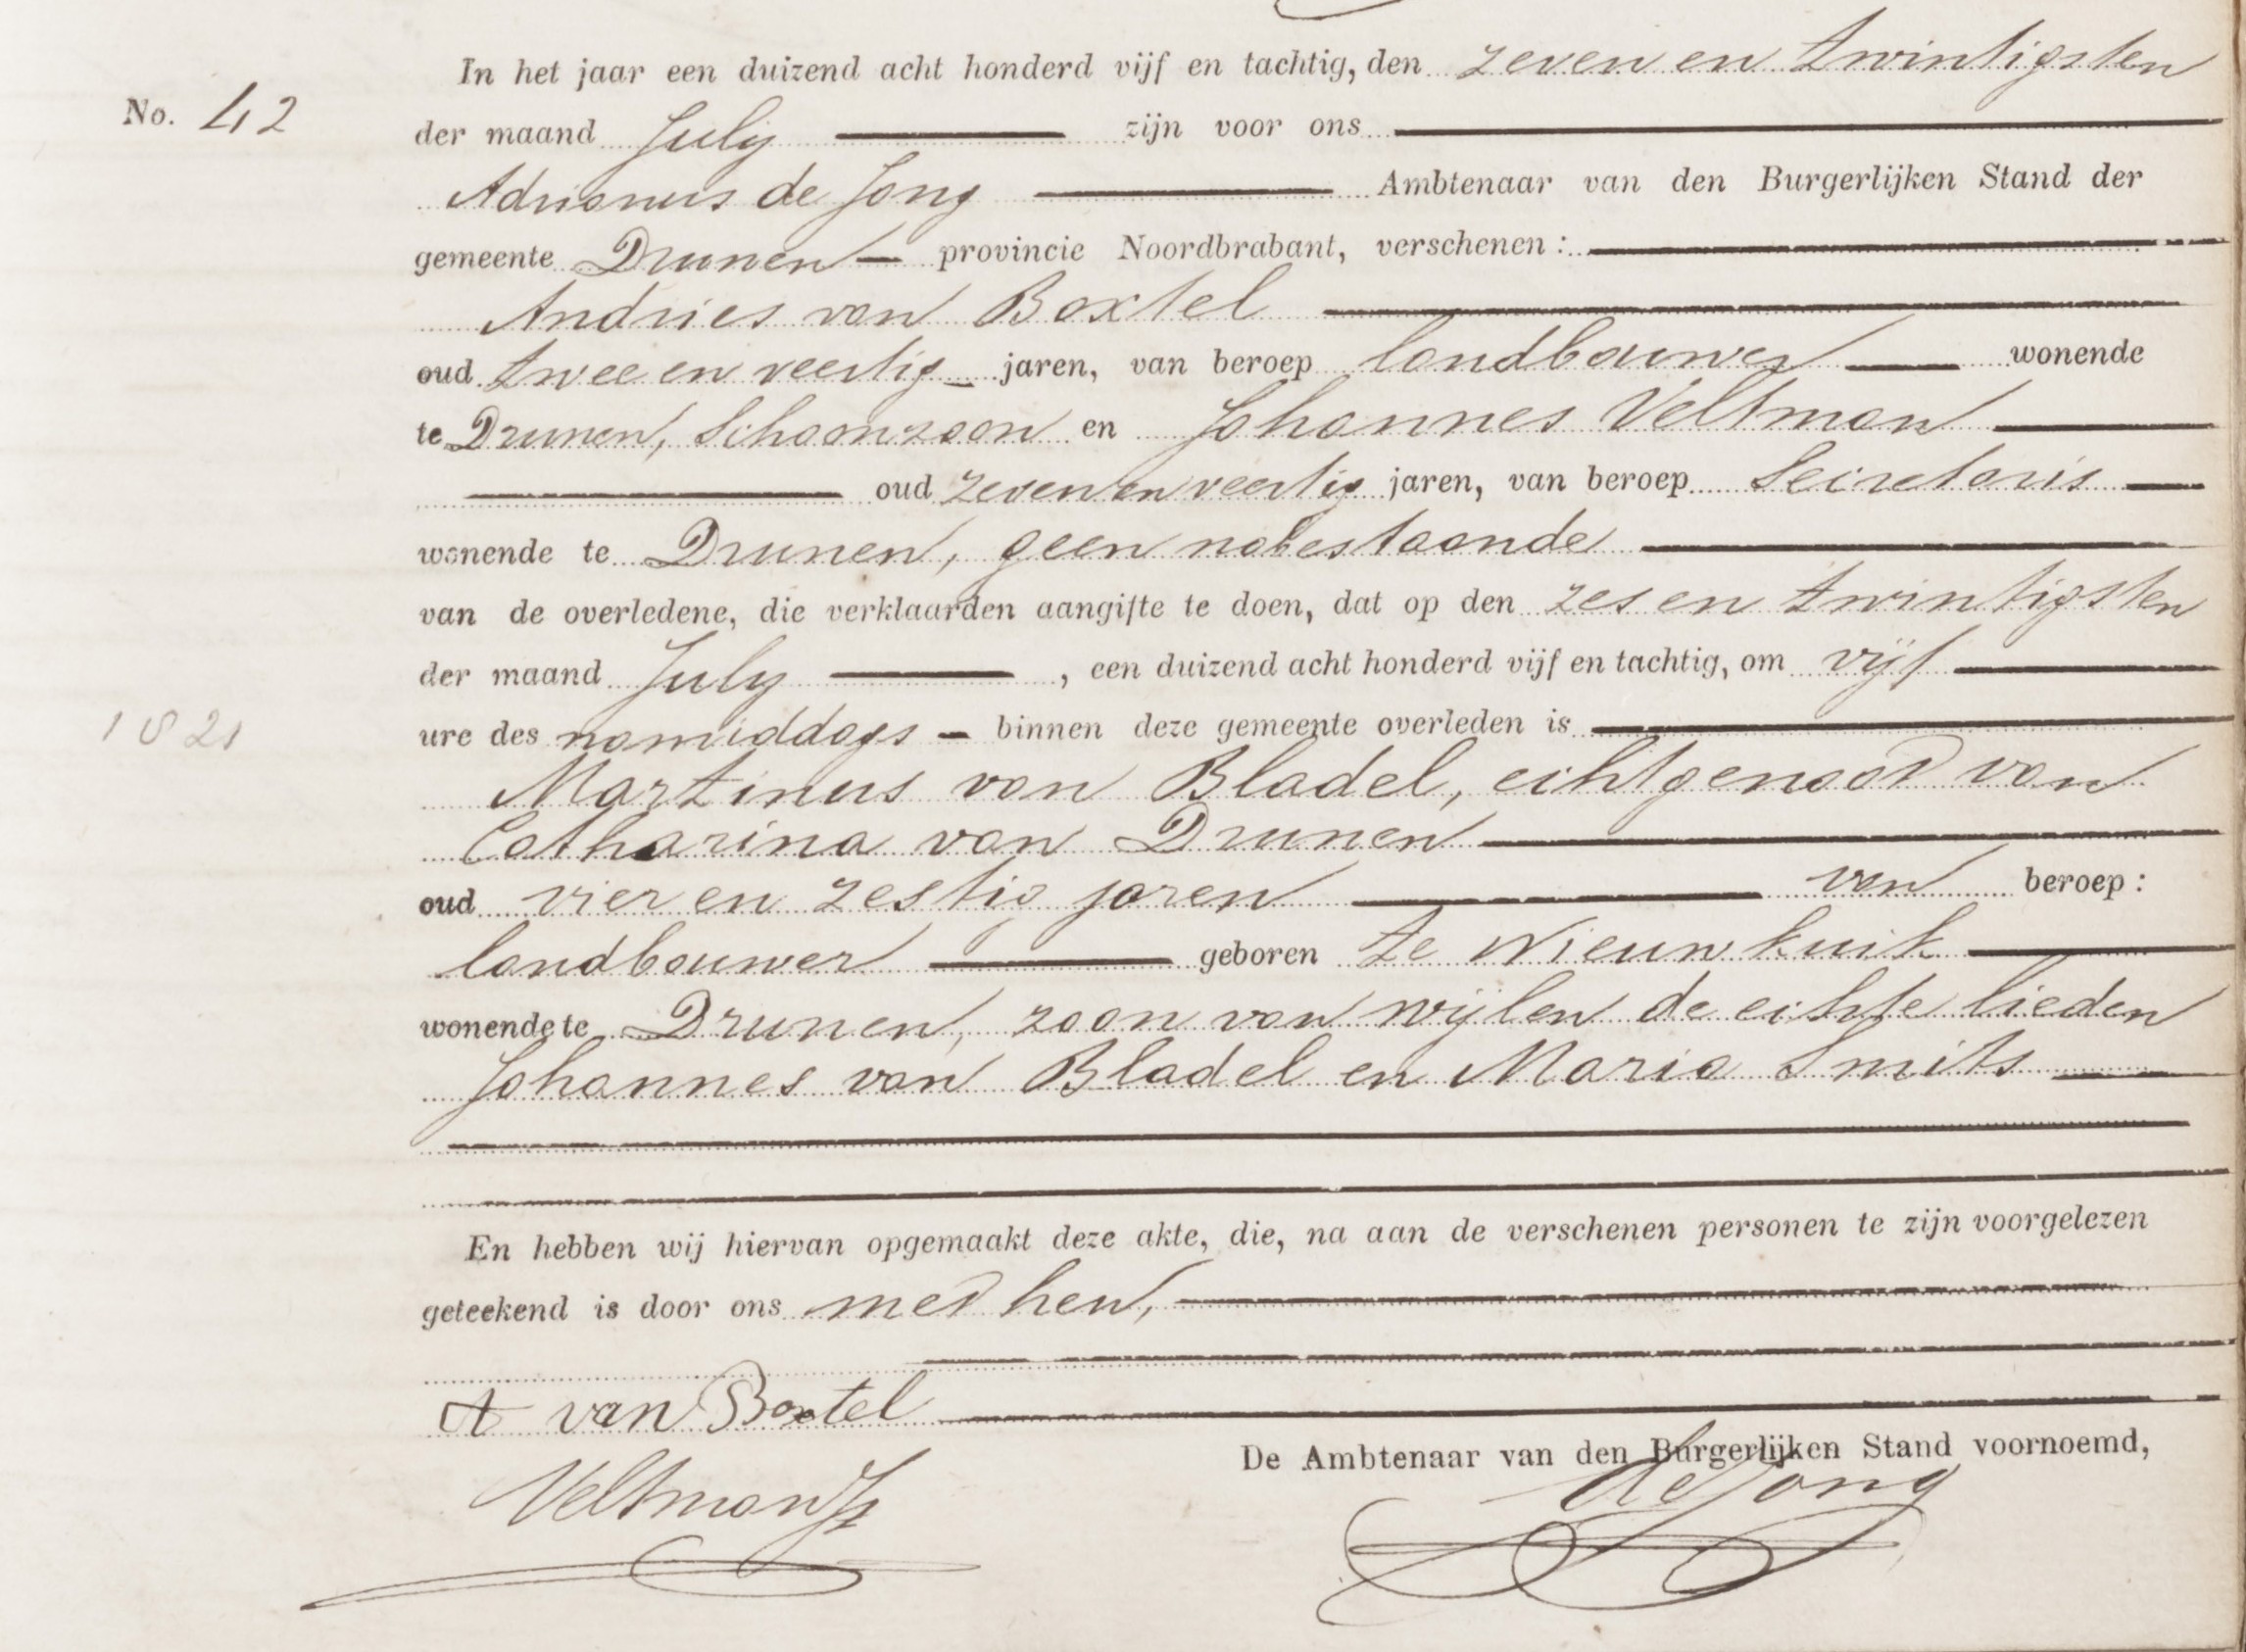 In het jaar een duizend acht honderd vijf en tachtig, den zeven en twintigsten
No. 42
der maand July zijn voor ons
Adrianus de Jong Ambtenaar van den Burgerlijken Stand der
gemeente Drunen provincie Noordbrabant, verschenen:
Andries van Boxtel
oud twee en veertig jaren, van beroep landbouwer wonende
te Drunen, Schoonzoon en Johannes Veltman
oud zeven en veertig jaren, van beroep Secretaris
wonende te Drunen, geen nabestaande
van de overledene, die verklaarden aangifte te doen, dat op den zes en twintigsten
der maand July, een duizend acht honderd vijf en tachtig, om vijf
1821
ure des namiddags binnen deze gemeente overleden is
Martinus van Bladel, echtgenoot van
Catharina van Drunen
oud vier en zestig jaren van beroep:
landbouwer geboren te Nieuwkuik
wonende te Drunen, zoon van wijlen de echte lieden
Johannes van Bladel en Maria Smits
En hebben wij hiervan opgemaakt deze akte, die, na aan de verschenen personen te zijn voorgelezen
geteekend is door ons met hen,
A van Boxtel
De Ambtenaar van den Burgerlijken Stand voornoemd,
Veltman
de Jong